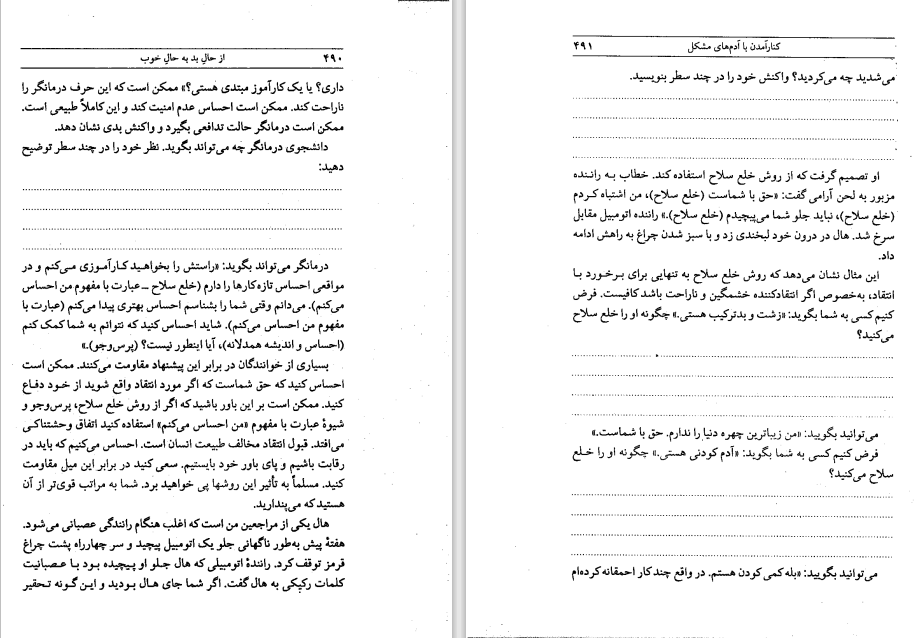 ۴۹۰ از حالِ بد به حالِ خوب
داری؟ یا یک کارآموز مبتدی هستی؟» ممکن است که این حرف درمانگر را
ناراحت کند. ممکن است احساس عدم امنیت کند و این کاملاً طبیعی است.
ممکن است درمانگر حالت تدافعی بگیرد و واکنش بدی نشان دهد.
دانشجوی درمانگر چه می‌تواند بگوید. نظر خود را در چند سطر توضیح
دهید:
درمانگر می‌تواند بگوید: «راستش را بخواهید کارآموزی می‌کنم و در
مواقعی احساس تازه‌کارها را دارم (خلع سلاح – عبارت با مفهوم من احساس
می‌کنم). می‌دانم وقتی شما را بشناسم احساس بهتری پیدا می‌کنم (عبارت با
مفهوم من احساس می‌کنم). شاید احساس کنید که نتوانم به شما کمک کنم
(احساس و اندیشه همدلانه)، آیا اینطور نیست؟ (پرس‌وجو).»
بسیاری از خوانندگان در برابر این پیشنهاد مقاومت می‌کنند. ممکن است
احساس کنید که حق شماست که اگر مورد انتقاد واقع شوید از خود دفاع
کنید. ممکن است بر این باور باشید که اگر از روش خلع سلاح، پرس‌وجو و
شیوهٔ عبارت با مفهوم «من احساس می‌کنم» استفاده کنید اتفاق وحشتناکی
می‌افتد. قبول انتقاد مخالف طبیعت انسان است. احساس می‌کنیم که باید در
رقابت باشیم و پای باور خود بایستیم. سعی کنید در برابر این میل مقاومت
کنید. مسلماً به تأثیر این روشها پی خواهید برد. شما به مراتب قوی‌تر از آن
هستید که می‌پندارید.
هال یکی از مراجعین من است که اغلب هنگام رانندگی عصبانی می‌شود.
هفتهٔ پیش به‌طور ناگهانی جلو یک اتومبیل پیچید و سر چهارراه پشت چراغ
قرمز توقف کرد. رانندهٔ اتومبیلی که هال جلو او پیچیده بود با عصبانیت
کلمات رکیکی به هال گفت. اگر شما جای هال بودید و این گونه تحقیر
کنارآمدن با آدم‌های مشکل ۴۹۱
می‌شدید چه می‌کردید؟ واکنش خود را در چند سطر بنویسید.
او تصمیم گرفت که از روش خلع سلاح استفاده کند. خطاب به راننده
مزبور به لحن آرامی گفت: «حق با شماست (خلع سلاح)، من اشتباه کردم
(خلع سلاح)، نباید جلو شما می‌پیچیدم (خلع سلاح).» راننده اتومبیل مقابل
سرخ شد. هال در درون خود لبخندی زد و با سبز شدن چراغ به راهش ادامه
داد.
این مثال نشان می‌دهد که روش خلع سلاح به تنهایی برای برخورد با
انتقاد، به‌خصوص اگر انتقادکننده خشمگین و ناراحت باشد کافیست. فرض
کنیم کسی به شما بگوید: «زشت و بدترکیب هستی.» چگونه او را خلع سلاح
می‌کنید؟
می‌توانید بگویید: «من زیباترین چهره دنیا را ندارم. حق با شماست.»
فرض کنیم کسی به شما بگوید: «آدم کودنی هستی.» چگونه او را خلع
سلاح می‌کنید؟
می‌توانید بگویید: «بله کمی کودن هستم. در واقع چند کار احمقانه کرده‌ام